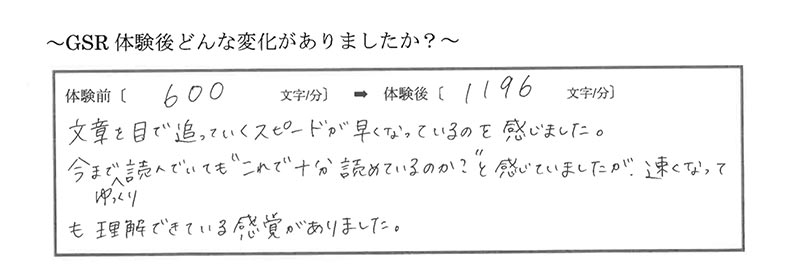 ～GSR 体験後どんな変化がありましたか？～
体験前〔 600 文字/分〕 ➡ 体験後〔 1196 文字/分〕
文章を目で追っていくスピードが早くなっているのを感じました。
今まで読んでいても"これで十分読めているのか?"と感じていましたが、速くなって
ゆっくり
も理解できている感覚がありました。